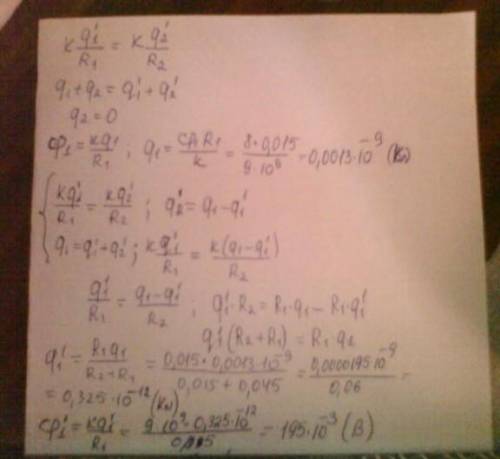 k q₁'/R₁ = k q₂'/R₂
q₁+q₂ = q₁'+q₂'
q₂=0
φ₁ = kq₁/R₁ ; q₁ = φ₁R₁/k = 8·0,015/9·10⁹ = 0,0013·10⁻⁹ (Кл)
kq₁'/R₁ = kq₂'/R₂ ; q₂' = q₁-q₁'
q₁=q₁'+q₂' ; kq₁'/R₁ = k(q₁-q₁')/R₂
q₁'/R₁ = q₁-q₁'/R₂ ; q₁'·R₂=R₁·q₁-R₁·q₁'
q₁'(R₂+R₁) = R₁·q₂
q₁' = R₁q₁/R₂+R₁ = 0,015·0,0013·10⁻⁹/0,015+0,045 = 0,0000195·10⁻⁹/0,06 =
= 0,325·10⁻¹² (Кл)
φ₁' = kq₁'/R₁ = 9·10⁹·0,325·10⁻¹²/0,015 = 195·10⁻³ (В)